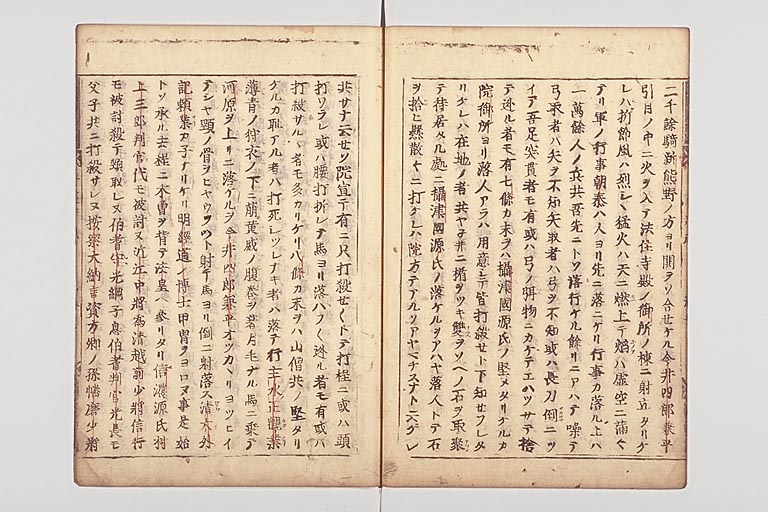 二千餘騎新熊野ノ方ヨリ閧ヲソ合セケル今井四郎兼平
引目ノ中ニ火ヲ入テ法住寺殿ノ御所ノ棟ニ射立タリケ
レハ折節風ハ烈シク猛火ハ天ニ燃上テ焰ハ虚空ニ蒲ク
テリ軍ノ行事朝泰ハ人ヨリ先ニ落ニケリ行事カ落ル上ハ
一萬餘人ノ兵共吾先ニトソ落行ケル餘リニアハテ噪テ
弓取者ハ矢ヲ不知矢取者ハ弓ヲ不知或ハ長刀倒ニツ
イテ吾足突貫者モ有或ハ弓ノ弭物ニカケテエハツサテ捨
テ迯ル者モ有七條カ末ヲハ攝津國源氏ノ堅メタリケルカ
院御所ヨリ落人アラハ用意シテ皆打殺セト下知セラレタ
リケレハ在地ノ者共ヤ子井ニ楯ヲツキ雙ヲソヘノ石ヲ取聚
テ待居タル處ニ攝津國源氏ノ落ケルヲアハヤ落人トテ石
ヲ拾ヒ懸散々ニ打ケレハ院方テアルソアヤマチスナト云ケレ
共サナ云セソ院宣テ有ニ只打殺せくトテ打程ニ或ハ頭
打ワラレ或ハ腰打折レテ馬ヨリ落ハフく迯ル者モ有或ハ
打殺サルヽ者モ多カリケリ八條カ末ヲハ山僧共ノ堅タリ
ケルカ耻アル者ハ打死レツレナキ者ハ落テ行主水正親業
薄青ノ狩衣ノ下ニ萠黄威ノ腹巻ヲ着月毛ナル馬ニ乗テ
河原ヲ上リニ落ケルヲ今井四郎兼平オツカヽリヨツヒイ
テシヤ頸ノ骨ヲヒヤウツト射テ馬ヨリ倒ニ射落ス清大外
記頼業カ子ナリケリ明經道ノ博士甲冑ヲヨロフ事是始
トソ承ル去程ニ木曽ヲ背テ法皇ヘ參リタリ信濃源氏村
上三郎判官代モ被討又近江中將為清越前少將信行
モ被討殺テ頸取レヌ伯耆守光綱子息伯耆判官光長モ
父子共ニ打殺サレヌ按察大納言資方卿ノ孫播磨少將